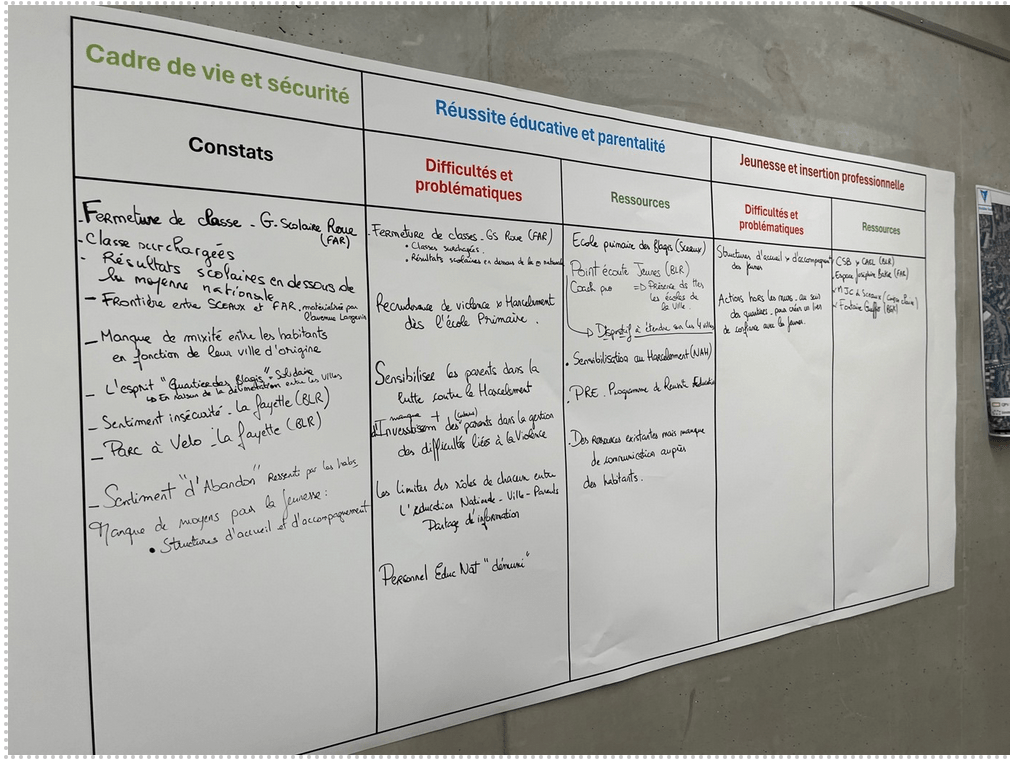 Cadre de vie et sécurité
Constats
- Fermeture de classe - G. Scolaire Roue
(FAR)
- Classe surchargées
- Résultats scolaires en dessous de
la moyenne nationale
- Frontière entre SCEAUX et FAR, matérialisée par
l'avenue Langevin
- Manque de mixité entre les habitants
en fonction de leur ville d'origine
- L'esprit "Quartier des Blagis" - Solidaire
↳ En raison de la délimitation entre les villes
- Sentiment insécurité - la fayette (BLR)
- Parc à Velo - la fayette (BLR)
- Sentiment "d'Abandon" Ressenti par les habs
Manque de moyens pour la jeunesse :
• Structures d'accueil et d'accompagnement
Réussite éducative et parentalité
Difficultés et
problématiques
- Fermeture de classes - GS Roue (FAR)
• Classes surchargées
• Résultats scolaires en dessous de la nationale
Recrudescence de violence x Harcelement
dès l'école Primaire.
Sensibiliser les parents dans la
lutte contre le Harcelement
manque +
d'Investissem des parents dans la gestion
des difficultés liées à la Violence
Les limites des rôles de chacun entre
L'éducation Nationale - Ville - Parents
Partage d'information
Personnel Éduc Nat "démuni"
Ressources
Ecole primaire des Blagis (Sceaux)
Point écoute Jeunes (BLR)
Coach pro => Présence de
les écoles de
la Ville.
→ Dispositif à étendre sur les 4 villes
• Sensibilisation au Harcelement (NAH)
• PRE. Programme de Réussite Éducative
. Des Ressources existantes mais manque
de communication auprès
des habitants.
Jeunesse et insertion professionnelle
Difficultés et
problématiques
Structures d'accueil x d'accompagnent
des jeunes
Actions hors les murs, au sein
des quartiers, pour créer un lien
de confiance avec les jeunes.
Ressources
- CSB x CAEL (BLR)
- Espace Joséphine Baker (FAR)
- MJC à Sceaux
- Fontaine Gueffier (BGX)